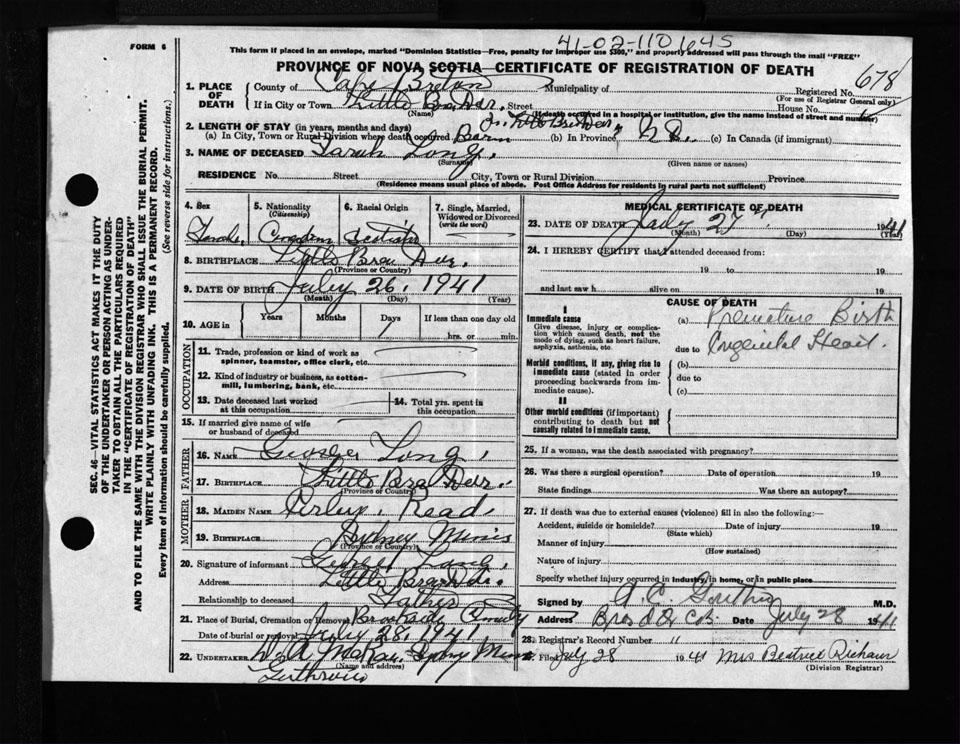 41-02-110645
FORM 6
This form if placed in an envelope, marked "Dominion Statistics—Free, penalty for improper use $300," and properly addressed will pass through the mail "FREE"
PROVINCE OF NOVA SCOTIA—CERTIFICATE OF REGISTRATION OF DEATH
678
1. PLACE OF DEATH
County of Cape Breton Municipality of Registered No.
(For use of Registrar General only)
If in City or Town Little Bras d'or. Street House No.
(Name) (If death occurred in a hospital or institution, give the name instead of street and number)
2. LENGTH OF STAY (in years, months and days)
(a) In City, Town or Rural Division where death occurred (b) In Province (c) In Canada (if immigrant)
3. NAME OF DECEASED Sarah Long.
(Surname) (Given name or names)
RESIDENCE No. Street City, Town or Rural Division Province
(Residence means usual place of abode. Post Office Address for residents in rural parts not sufficient)
4. Sex 5. Nationality (Citizenship) 6. Racial Origin 7. Single, Married, Widowed or Divorced (write the word)
8. BIRTHPLACE Little Bras d'or.
(Province or Country)
9. DATE OF BIRTH July 26, 1941
(Month) (Day) (Year)
10. AGE in Years Months Days If less than one day old
1 hrs. or min.
OCCUPATION
11. Trade, profession or kind of work as spinner, teamster, office clerk, etc.
12. Kind of industry or business, as cotton-mill, lumbering, bank, etc.
13. Date deceased last worked at this occupation 14. Total yrs. spent in this occupation
15. If married give name of wife or husband of deceased
FATHER
16. NAME George Long.
17. BIRTHPLACE Little Bras d'or.
(Province or Country)
MOTHER
18. MAIDEN NAME Read
19. BIRTHPLACE Sydney Mines
(Province or Country)
20. Signature of informant George Long,
Address Little Bras d'or.
Relationship to deceased Father
21. Place of Burial, Cremation or Removal Brookside
Date of burial or removal July 28, 1941
22. UNDERTAKER McKay Sydney Mines
(Name and address)
MEDICAL CERTIFICATE OF DEATH
23. DATE OF DEATH July 27" 1941
(Month) (Day) (Year)
24. I HEREBY CERTIFY that I attended deceased from:
19 to 19
and last saw h alive on 19
CAUSE OF DEATH
I
Immediate cause
Give disease, injury or complication which caused death, not the mode of dying, such as heart failure, asphyxia, asthenia, etc.
(a) Premature Birth
due to Congenital Heart.
Morbid conditions, if any, giving rise to immediate cause (stated in order proceeding backwards from immediate cause).
(b)
due to
(c)
II
Other morbid conditions (if important) contributing to death but not causally related to immediate cause.
25. If a woman, was the death associated with pregnancy?
26. Was there a surgical operation? Date of operation 19
State findings Was there an autopsy?
27. If death was due to external causes (violence) fill in also the following:—
Accident, suicide or homicide? Date of injury 19
(State which)
Manner of injury
(How sustained)
Nature of injury
Specify whether injury occurred in industry, in home, or in public place
Signed by M.D.
Address Date July 28 1941
28. Registrar's Record Number "
Filed July 28 1941 Mrs Beatrice
(Division Registrar)
SEC. 46—VITAL STATISTICS ACT MAKES IT THE DUTY
OF THE UNDERTAKER OR PERSON ACTING AS UNDER-
TAKER TO OBTAIN ALL THE PARTICULARS REQUIRED
IN THE "CERTIFICATE OF REGISTRATION OF DEATH"
AND TO FILE THE SAME WITH THE DIVISION REGISTRAR WHO SHALL ISSUE THE BURIAL PERMIT.
WRITE PLAINLY WITH UNFADING INK. THIS IS A PERMANENT RECORD.
Every item of information should be carefully supplied. (See reverse side for instructions.)